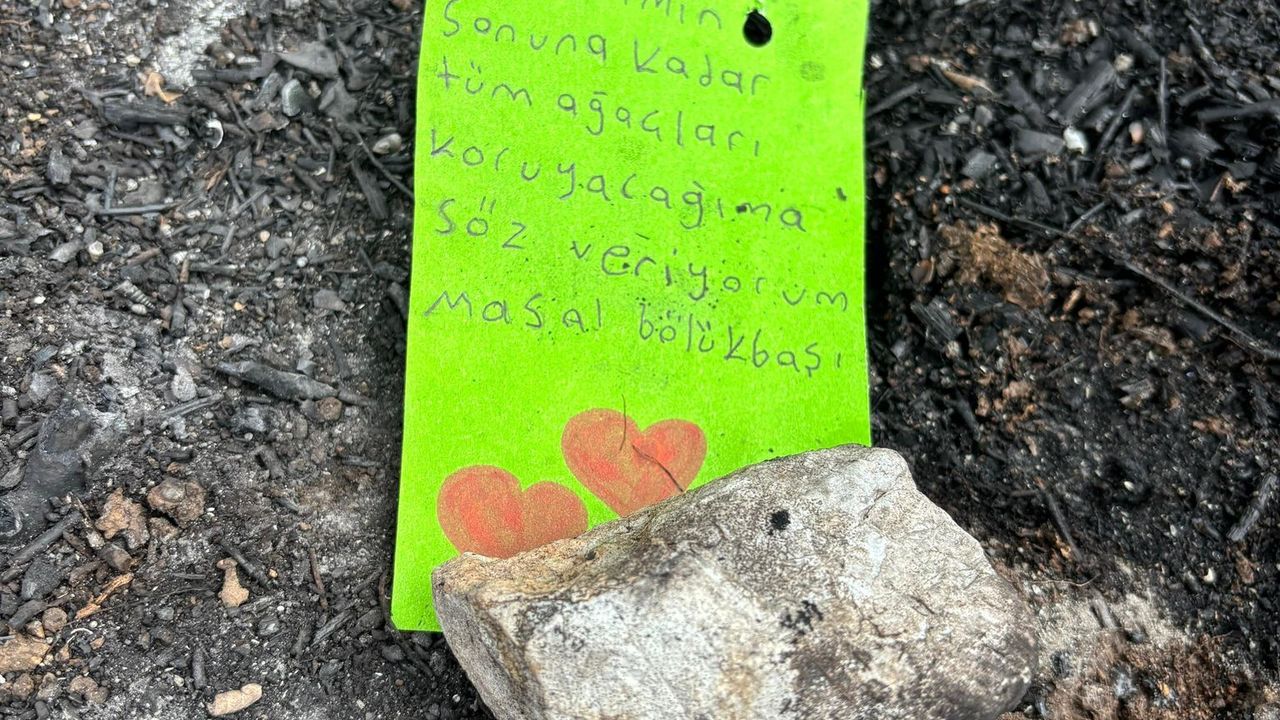 Sonuna kadar
tüm ağaçları
koruyacağıma
söz veriyorum
Masal bölükbaşı